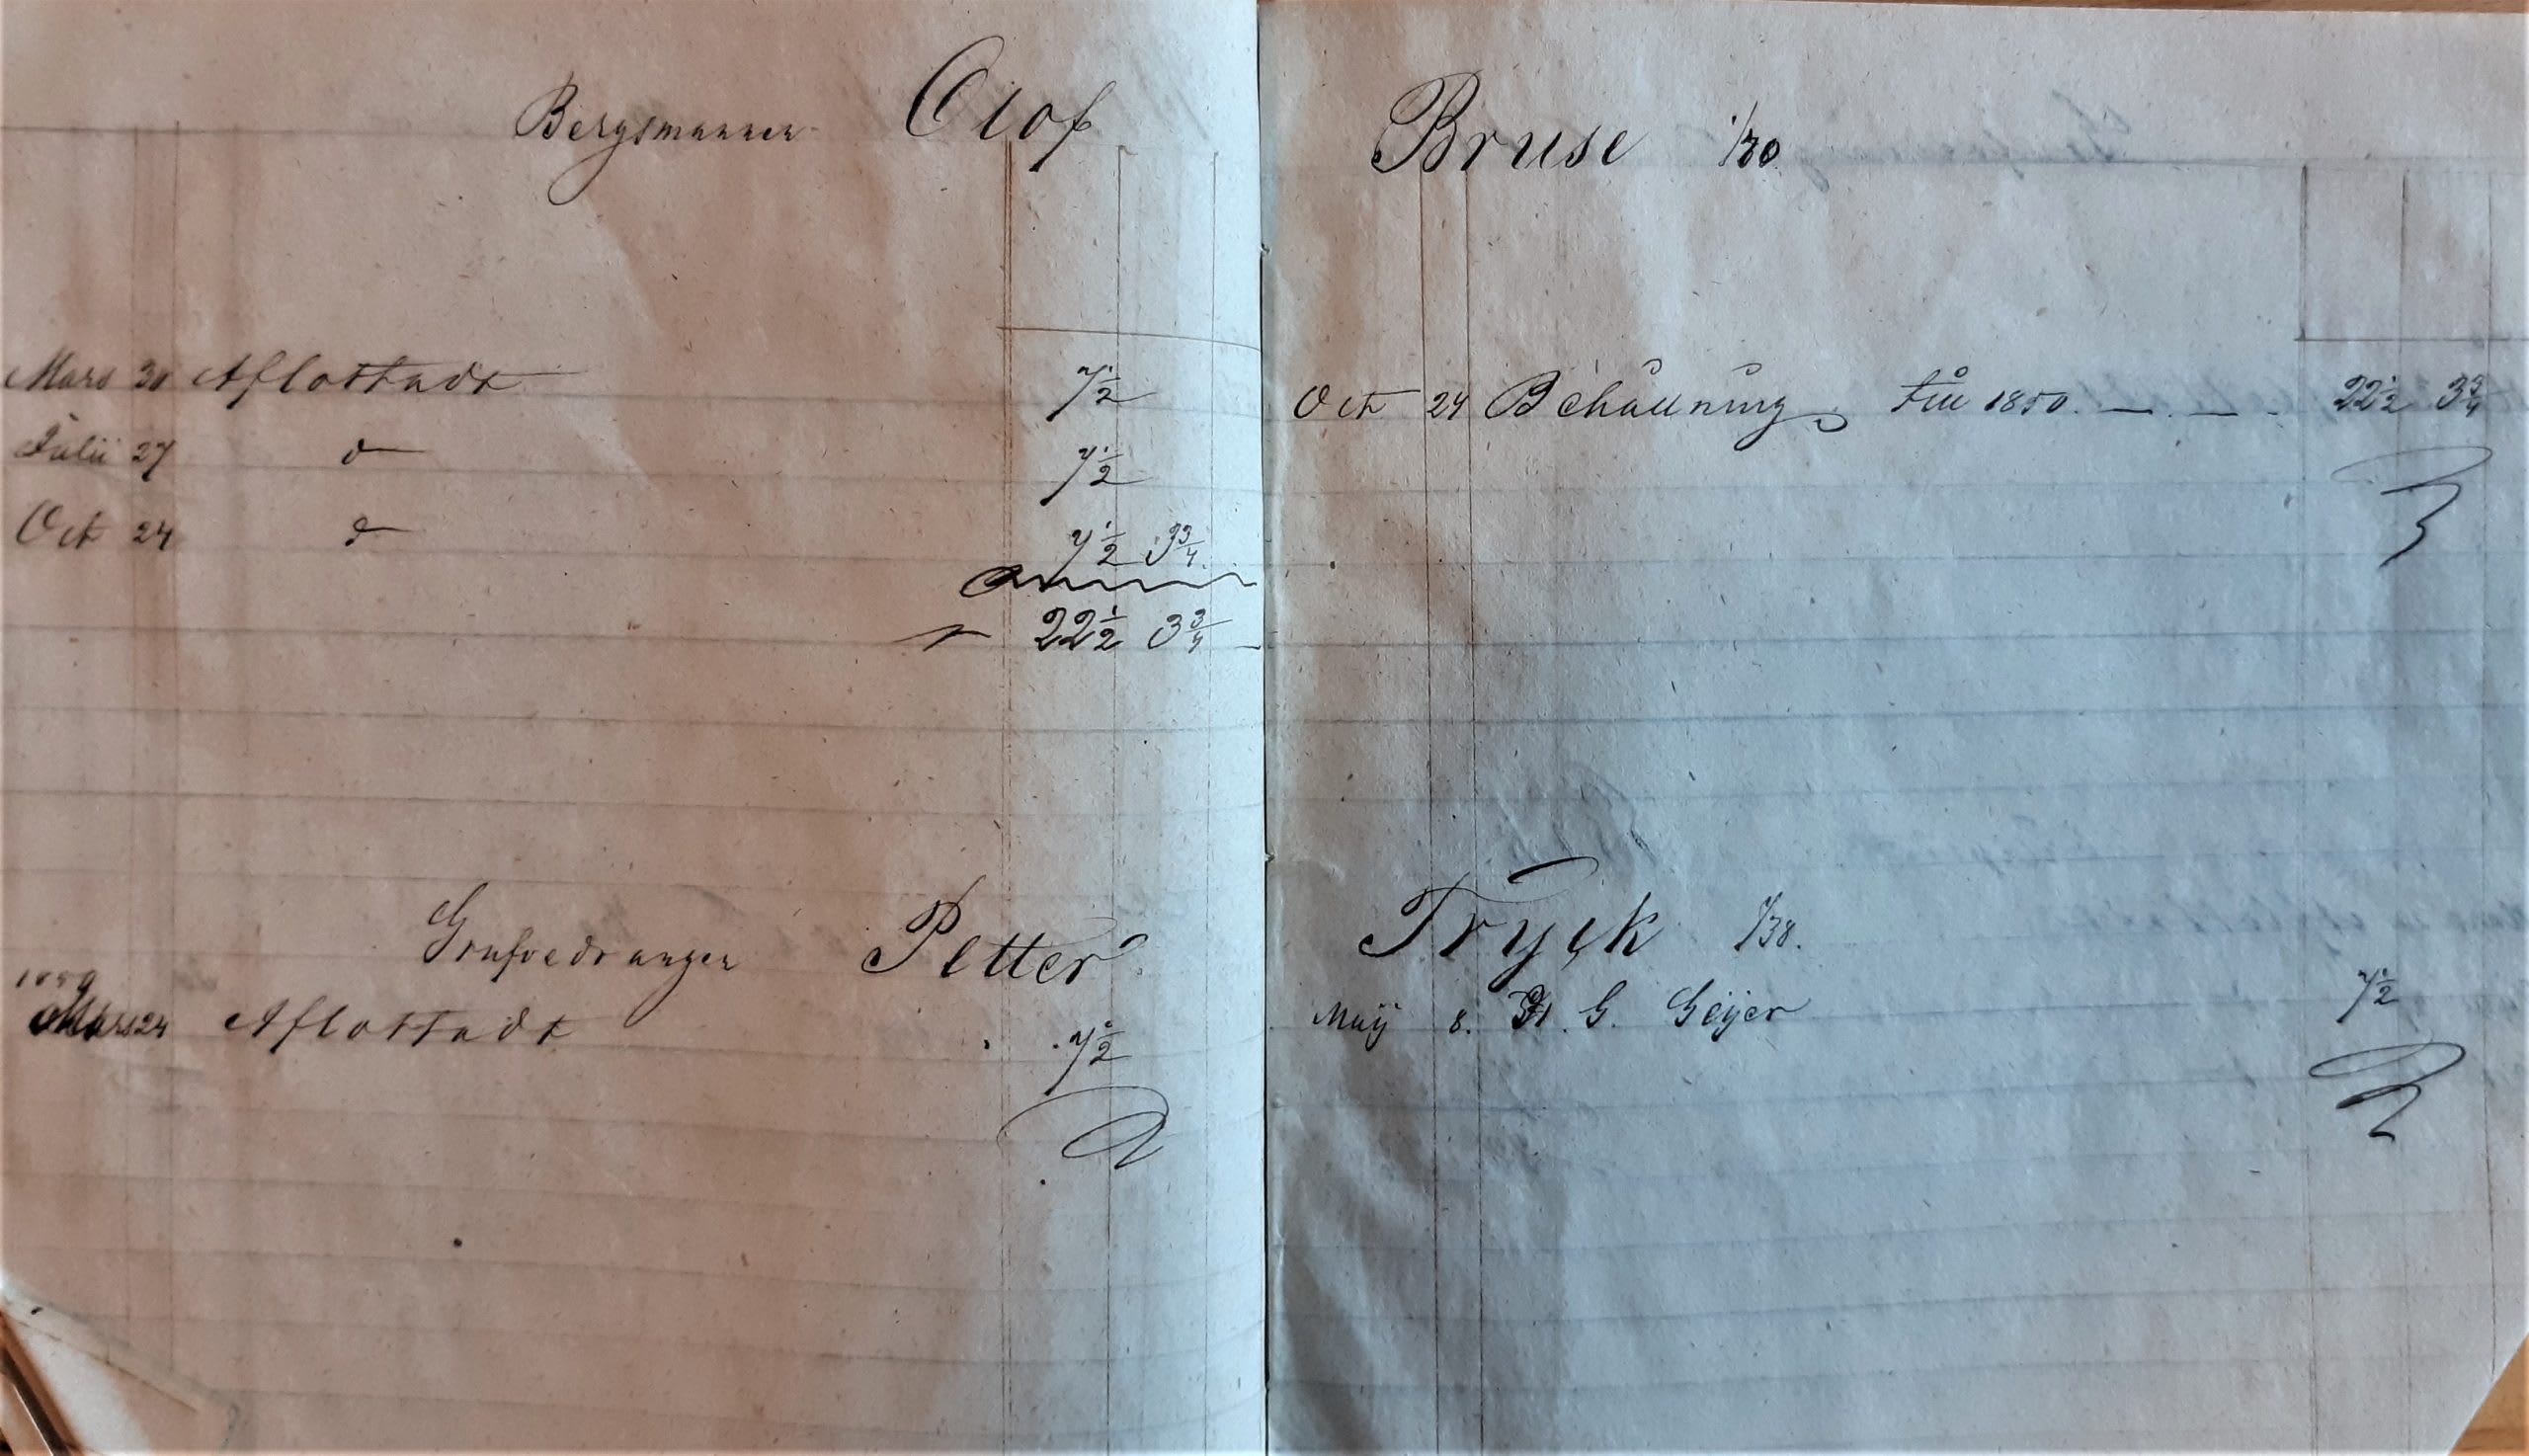 Bergsmannen Olof Bruse 1/20
Mars 30 Aflottadt 7½
Julii 27 d 7½
Oct 24 d 7½ 3¾
22½ 3¾
Oct 24 Behållning till 1850. 22½ 3¾
Grufvedrängen Petter Tryck 1/38.
1849
Mars 24 Aflottadt 7½
Maij 8. G. Geijer 7½